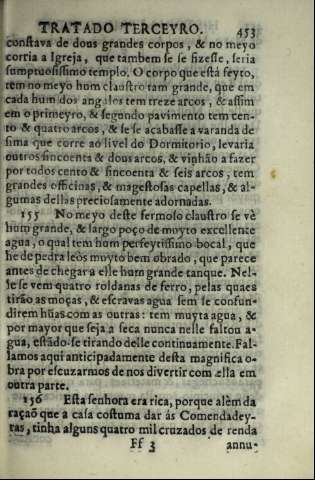 TRATADO TERCEYRO. 453
constava de dous grandes corpos, & no meyo
corria a Igreja, que tambem se se fizesse, seria
sumptuosissimo templo. O corpo que está feyto,
tem no meyo hum claustro tam grande, que em
cada hum dos angulos tem treze arcos, & assim
em o primeyro, & segundo pavimento tem cen-
to & quatro arcos, & se se acabasse a varanda de
sima que corre ao livel do Dormitorio, levaria
outros sincoenta & dous arcos, & vinhão a fazer
por todos cento & sincoenta & seis arcos, tem
grandes officinas, & magestosas capellas, & al-
gumas dellas preciosamente adornadas.
155 No meyo deste fermoso claustro se vè
hum grande, & largo poço de muyto excellente
agua, o qual tem hum perfeytissimo bocal, que
he de pedra leòs muyto bem obrado, que parece
antes de chegar a elle hum grande tanque. Nel-
le se vem quatro roldanas de ferro, pelas quaes
tirão as moças, & escravas agua sem se confun-
direm hũas com as outras: tem muyta agua, &
por mayor que seja a seca nunca nelle faltou a-
gua, estàdo-se tirando delle continuamente. Fal-
lamos aqui anticipadamente desta magnifica o-
bra por escuzarmos de nos divertir com ella em
outra parte.
156 Esta senhora era rica, porque alèm da
raçaõ que a casa costuma dar ás Comendadey-
ras, tinha alguns quatro mil cruzados de renda
Ff 3 annu-